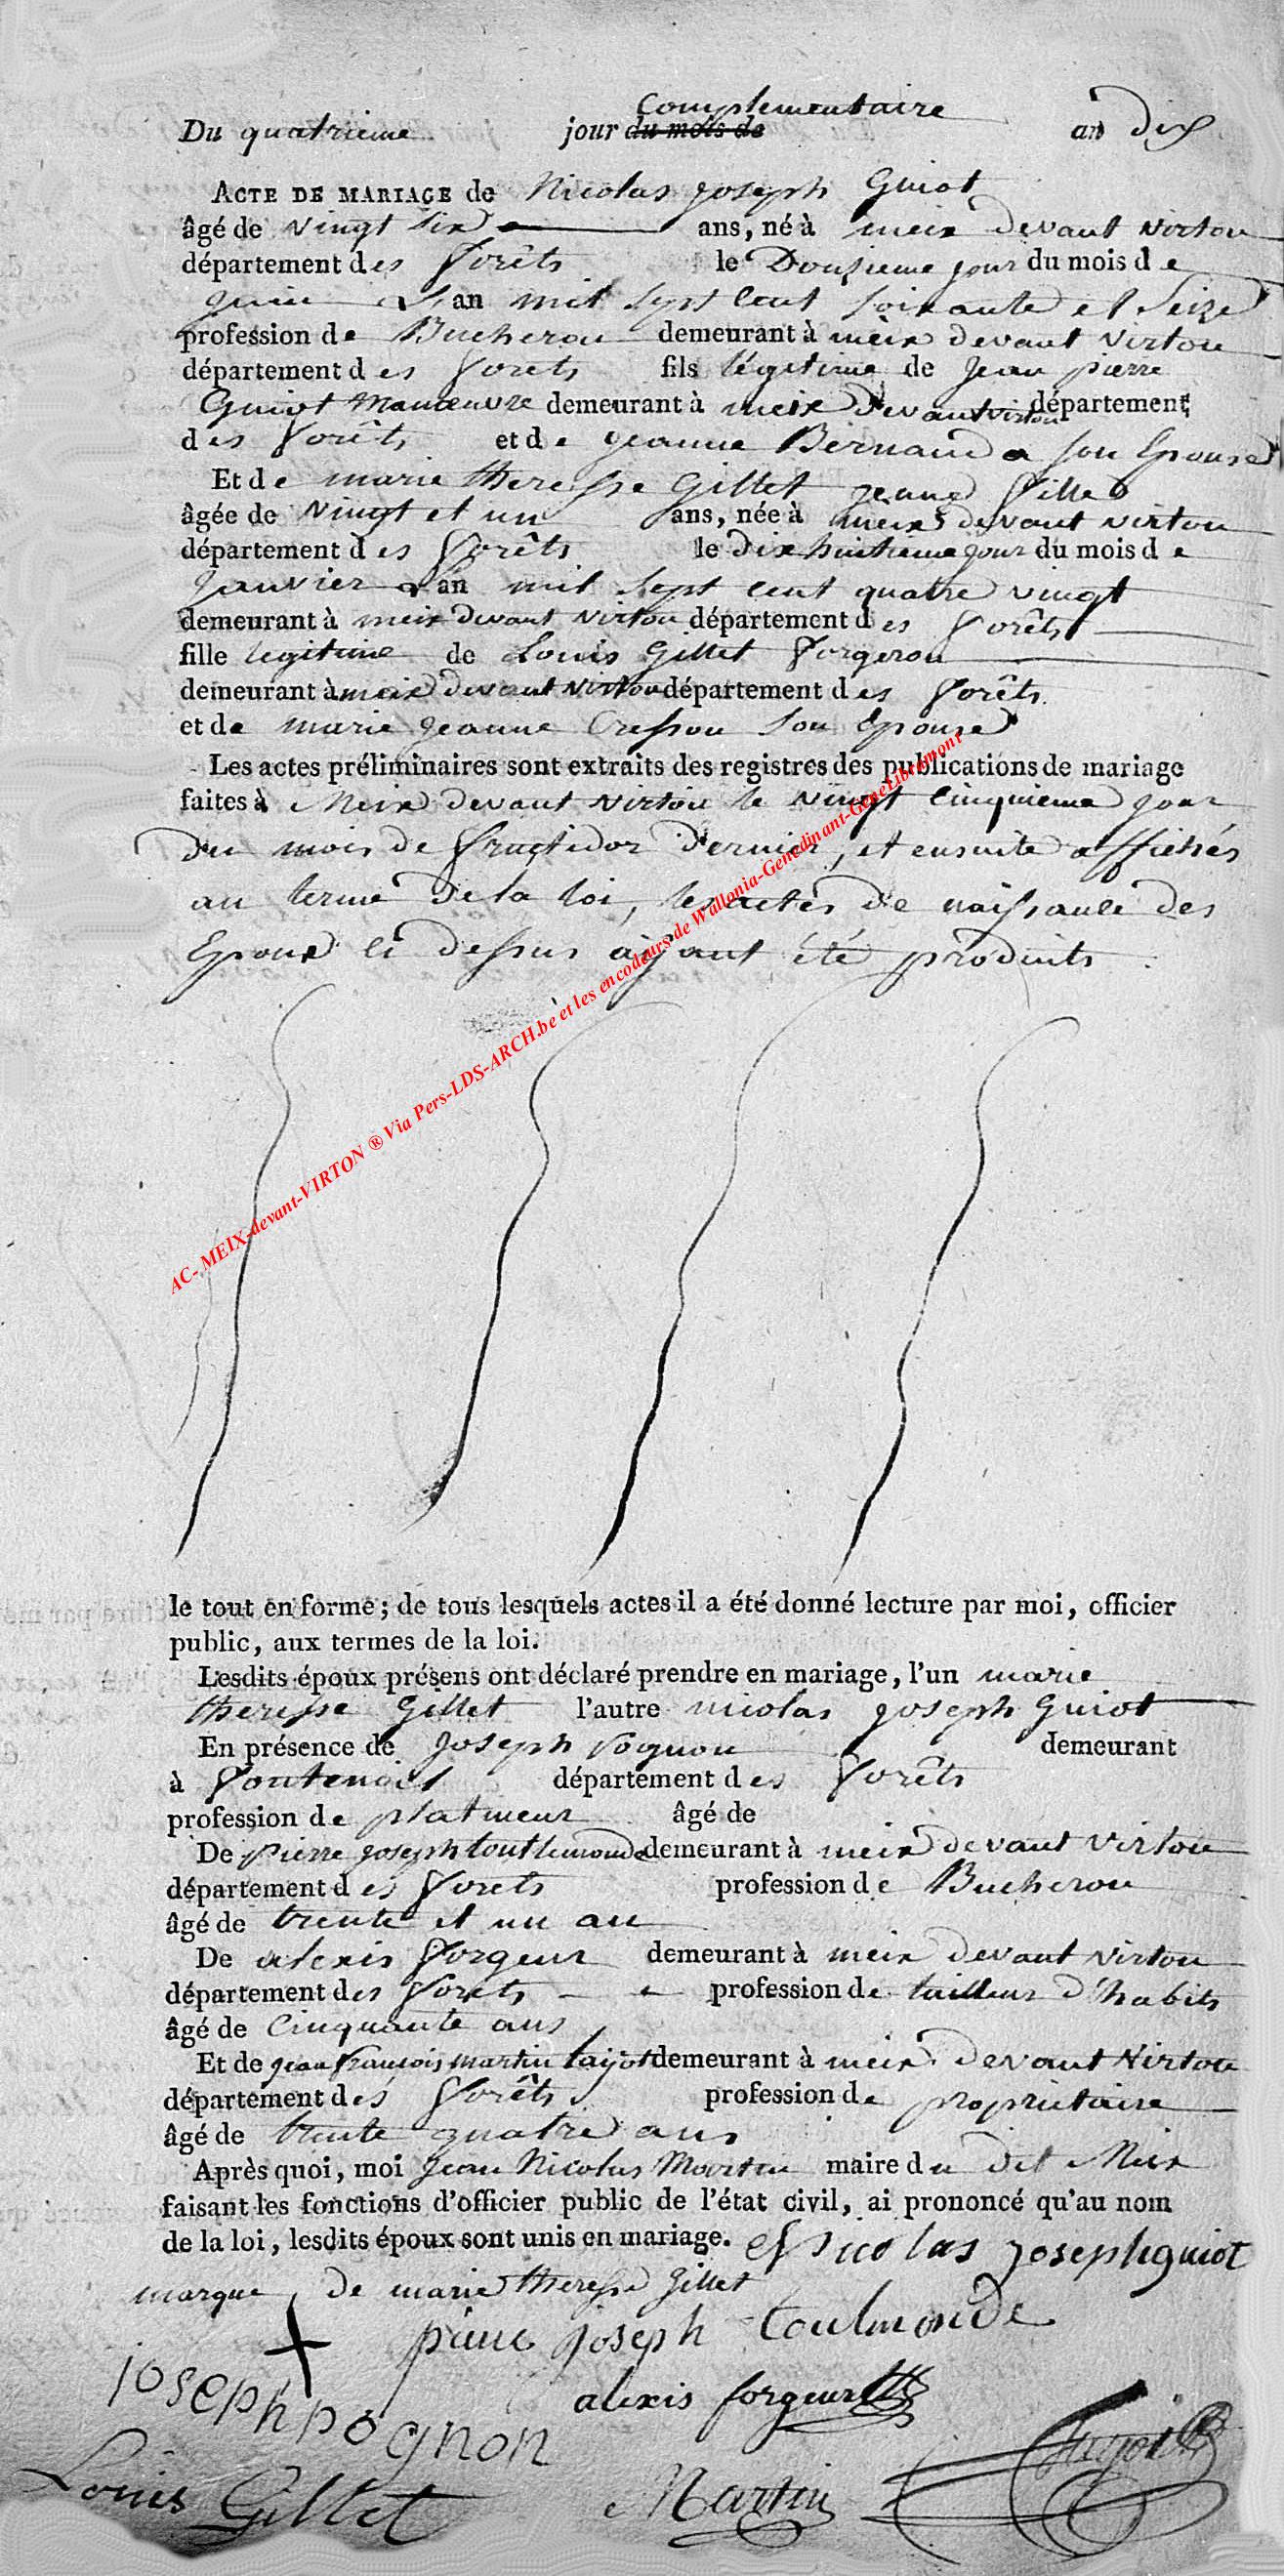 Complementaire
Du quatrieme jour du mois de an dix
ACTE DE MARIAGE de Nicolas joseph Guiot
âgé de vingt six ans, né à meix devant virton
département des forêts le Douzieme jour du mois de
juin L'an mil sept cent soixante et seize
profession de Bucheron demeurant à meix devant virton
département des forets fils légitime de jean pierre
Guiot manœuvre demeurant à meix devant virton département
des forêts et de jeanne Bernard son Epouse
Et de marie theresse Gillet jeune fille
âgée de vingt et un ans, née à meix devant virton
département des forêts le dix huitieme jour du mois de
janvier an mil sept cent quatre vingt
demeurant à meix devant virton département des forêts
fille legitime de Louis Gillet forgeron
demeurant à meix devant virton département des forêts
et de marie jeanne Cresson son Epouse
Les actes préliminaires sont extraits des registres des publications de mariage
faites à Meix devant virton le vingt cinquieme jour
du mois de fructidor dernier, et ensuite affichés
au terme de la loi, les actes de naissance des
Epoux ci dessus ayant été produits
AC- MEIX-devant-VIRTON ® Via Pers-LDS-ARCH.be et les encodeurs de Wallonia-Genedinant-GeneLibramont
le tout en forme ; de tous lesquels actes il a été donné lecture par moi, officier
public, aux termes de la loi.
Lesdits époux présens ont déclaré prendre en mariage, l'un marie
theresse Gillet l'autre nicolas joseph Guiot
En présence de joseph pognon demeurant
à département des forêts
profession de âgé de
De pierre joseph toutlemonde demeurant à meix devant virton
département des forets profession de Bucheron
âgé de trente et un an
De alexis forgeur demeurant à meix devant virton
département des forets profession de tailleur d'habits
âgé de cinquante ans
Et de jean françois martin demeurant à meix devant virton
département des forêts profession de proprietaire
âgé de trente quatre ans
Après quoi, moi jean Nicolas Martin maire du dit Meix
faisant les fonctions d'officier public de l'état civil, ai prononcé qu'au nom
de la loi, lesdits époux sont unis en mariage. Nicolas joseph guiot
marque de marie theresse Gillet
pierre joseph toulmonde
joseph pognon alexis forgeur
Louis Gillet Martin